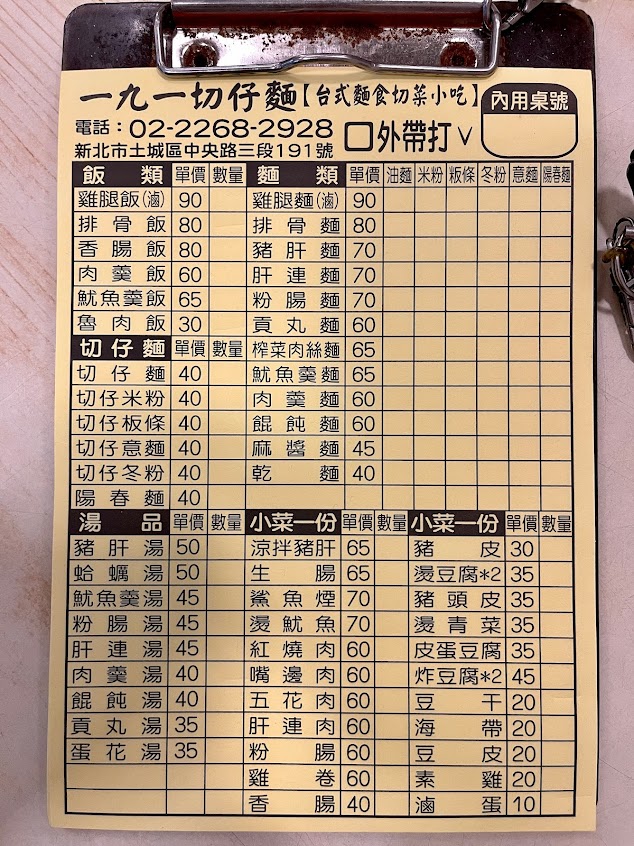 一九一切仔麵【台式麵食切菜小吃】
內用桌號
電話：02-2268-2928
□外帶打∨
新北市土城區中央路三段191號
飯類 單價 數量 麵類 單價 油麵 米粉 粄條 冬粉 意麵 陽春麵
雞腿飯(滷) 90 雞腿麵(滷) 90
排骨飯 80 排骨麵 80
香腸飯 80 豬肝麵 70
肉羹飯 60 肝連麵 70
魷魚羹飯 65 粉腸麵 70
魯肉飯 30 貢丸麵 60
切仔麵 單價 數量 榨菜肉絲麵 65
切仔麵 40 魷魚羹麵 65
切仔米粉 40 肉羹麵 60
切仔板條 40 餛飩麵 60
切仔意麵 40 麻醬麵 45
切仔冬粉 40 乾麵 40
陽春麵 40
湯品 單價 數量 小菜一份 單價 數量 小菜一份 單價 數量
豬肝湯 50 涼拌豬肝 65 豬皮 30
蛤蠣湯 50 生腸 65 燙豆腐*2 35
魷魚羹湯 45 鯊魚煙 70 豬頭皮 35
粉腸湯 45 燙魷魚 70 燙青菜 35
肝連湯 45 紅燒肉 60 皮蛋豆腐 35
肉羹湯 40 嘴邊肉 60 炸豆腐*2 45
餛飩湯 40 五花肉 60 豆干 20
貢丸湯 35 肝連肉 60 海帶 20
蛋花湯 35 粉腸 60 豆皮 20
雞卷 60 素雞 20
香腸 40 滷蛋 10